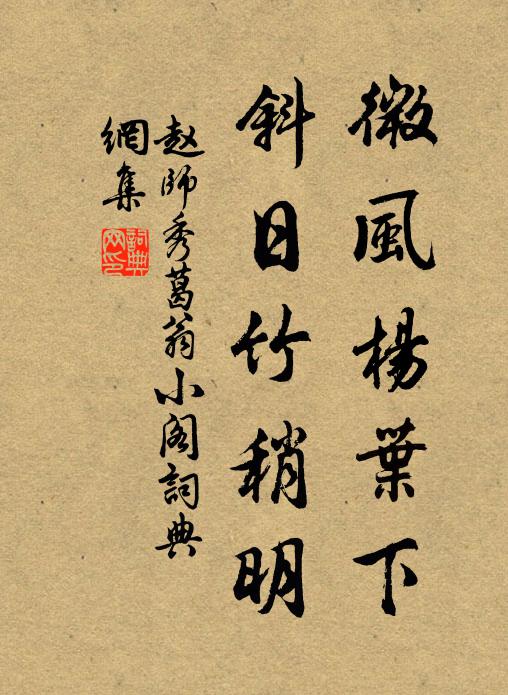 微風楊葉下
斜日竹稍明
赵師秀葛翁小阁詞典
網集
詞典网印